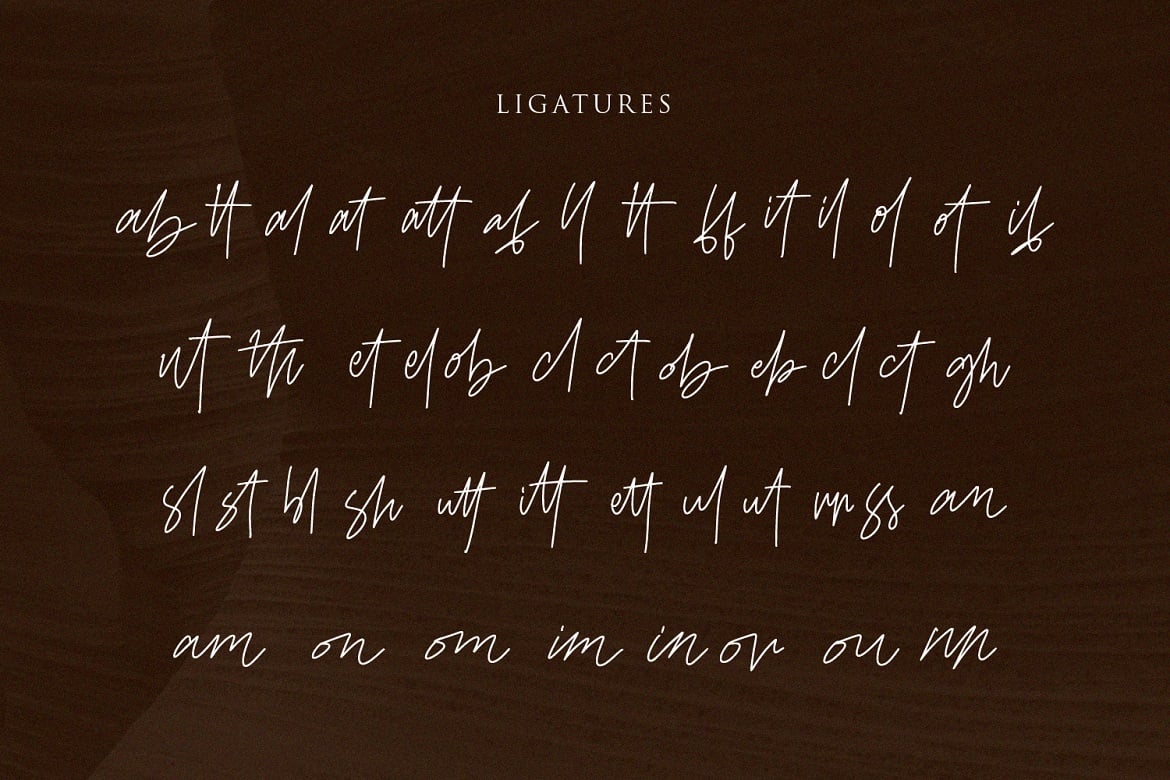 LIGATURES
ab tt al at att af ll tt ff it il ol ot if
nt th et el ob cl ct ob eb cl ct gh
sl st bl sh utt itt ett ul ut ss an
am on om im in or ou